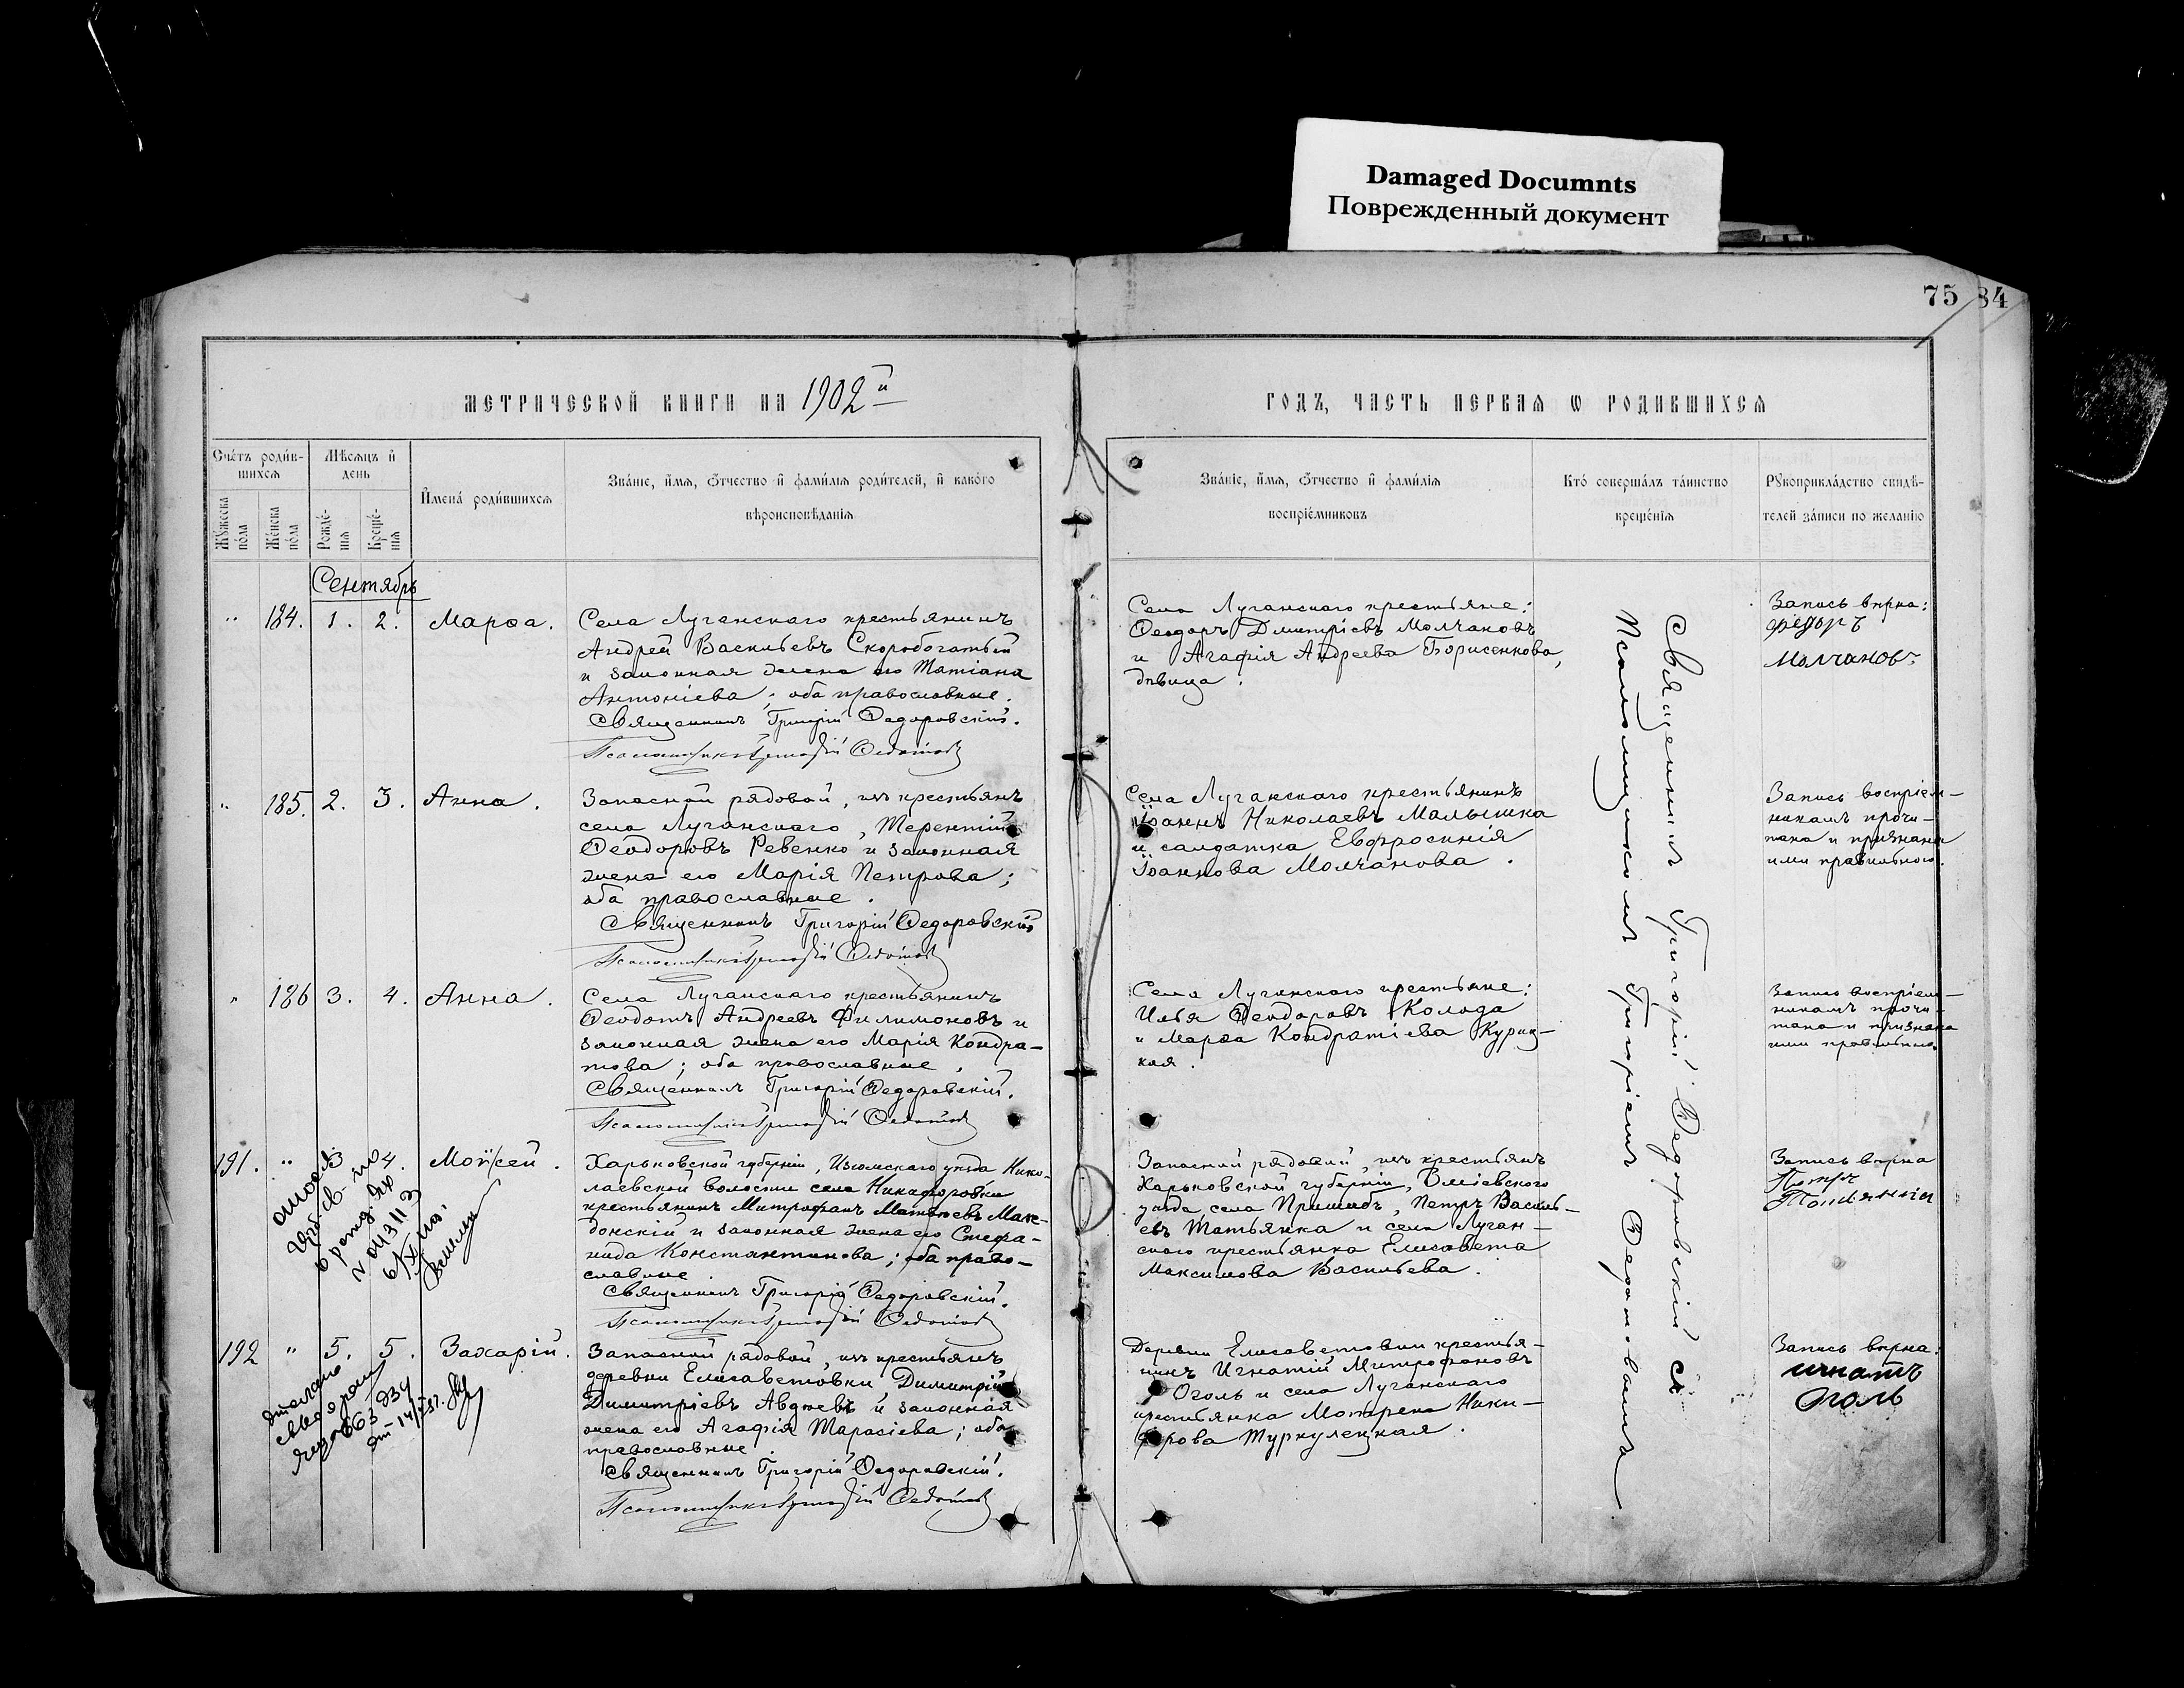 Damaged Documnts
Поврежденный документ
75 84
МЕТРИЧЕСКОЙ КНИГИ НА 1902й
ГОДЪ, ЧАСТЬ ПЕРВАЯ Ѡ РОДИВШИХСЯ
Счетъ родив-
шихся
Мѣсяцъ и
день
Мужеска
пола
Женска
пола
Рожде-
нія
Креще-
нія
Имена родившихся
Званіе, имя, отчество и фамилія родителей, и какого
вѣроисповѣданія
Званіе, имя, отчество и фамилія
воспріемниковъ
Кто совершалъ таинство
крещенія
Рукоприкладство свидѣ-
телей записи по желанію
Сентябрь
" 184. 1. 2. Марѳа.
Села Луганскаго крестьянинъ
Андрей Васильевъ Скоробогатый
и законная жена его Татіана
Антоніева; оба православные.
Священникъ Григорій Ѳедоровскій.
Псаломщикъ Григорій Ѳедотов
Села Луганскаго крестьяне:
Ѳеодоръ Дмитріевъ Молчановъ
и Агафія Андреева Борисенкова,
дѣвица.
Запись вѣрна:
Федоръ
Молчановъ
" 185. 2. 3. Анна.
Запасной рядовой, изъ крестьянъ
села Луганскаго, Терентій
Ѳеодоровъ Ревенко и законная
жена его Марія Петрова;
оба православные.
Священникъ Григорій Ѳедоровскій
Псаломщикъ Григорій Ѳедотов
Села Луганскаго крестьянинъ
Іоаннъ Николаевъ Малышка
и солдатка Евфросинія
Іоаннова Молчанова.
Запись воспріем-
никамъ прочи-
тана и признана
ими правильною.
" 186 3. 4. Анна.
Села Луганскаго крестьянинъ
Ѳеодотъ Андреевъ Филимоновъ и
законная жена его Марія Кондра-
това; оба православные.
Священникъ Григорій Ѳедоровскій.
Псаломщикъ Григорій Ѳедотов
Села Луганскаго крестьяне:
Илья Ѳеодоровъ Колода
и Марѳа Кондратіева Куриц-
кая.
Запись воспріем-
никамъ прочи-
тана и признана
ими правильною.
191. " 3 4. Моѵсей.
Харьковской губерніи, Изюмскаго уѣзда Нико-
лаевской волости села Никифоровки
крестьянинъ Митрофанъ Матвѣевъ Маке-
донскій и законная жена его Стефа-
нида Константинова; оба право-
славные.
Священникъ Григорій Ѳедоровскій.
Псаломщикъ Григорій Ѳедотов
Запасный рядовой, изъ крестьянъ
Харьковской губерніи, Зміевскаго
уѣзда, села Пришибъ, Петръ Василь-
евъ Татьянка и села Луган-
скаго крестьянка Елисавета
Максимова Васильева.
Запись вѣрна
Петръ
192 " 5. 5. Захарій.
Запасный рядовой, изъ крестьянъ
деревни Елисаветовки Димитрій
Димитріевъ Авдѣевъ и законная
жена его Агафія Тарасіева; оба
православные.
Священникъ Григорій Ѳедоровскій.
Псаломщикъ Григорій Ѳедотов
Деревни Елисаветовки крестья-
нинъ Игнатій Митрофановъ
Оголь и села Луганскаго
крестьянка Мотрена Ники-
форова Туркулецкая.
Запись вѣрна:
Игнатъ
Оголь
Священникъ Григорій Ѳедоровскій съ
Псаломщикомъ Григоріемъ Ѳедотовымъ